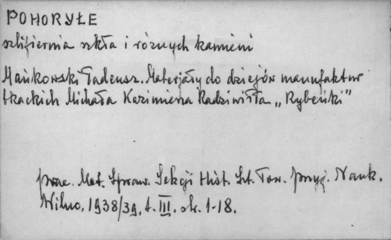 POHORYŁE
szlifiernia szkła i różnych kamieni
Mańkowski Tadeusz. Materjały do dziejów manufaktur
tkackich Michała Kazimierza Radziwiłła „Rybeńki”
Prace. Mat. Spraw. Sekcji Hist. Szt. Tow. Przyj. Nauk.
Wilno, 1938/39, t. III. str. 1-18.